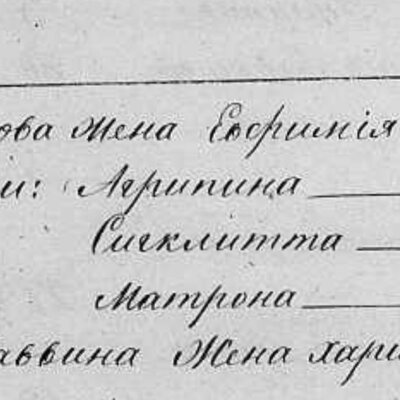 ова Жена Евфимія
и: Агрипина
Сигклитта
Матрона
аввина Жена Хари